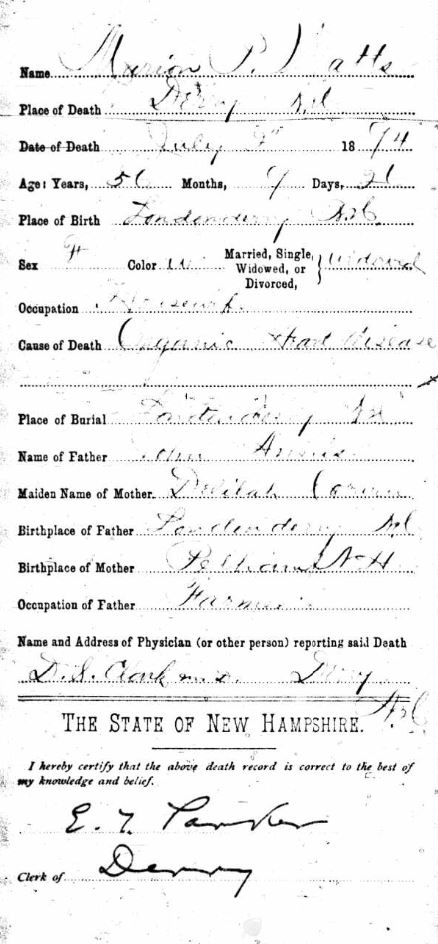 Name Marion P. Watts
Place of Death Derry N.H.
Date of Death July 18 74
Age: Years, 56 Months, 9 Days, 21
Place of Birth Londonderry N.H.
Sex F Color W Married, Single, Widowed, or Divorced, } Widowed
Occupation Housewf.
Cause of Death Organic Heart Disease
Place of Burial Londonderry N.H.
Name of Father John Annis
Maiden Name of Mother. Delilah
Birthplace of Father Londonderry N.H.
Birthplace of Mother Pelham N-H
Occupation of Father Farmer
Name and Address of Physician (or other person) reporting said Death
D. S. Clark M.D. Derry
N.H.
THE STATE OF NEW HAMPSHIRE.
I hereby certify that the above death record is correct to the best of
my knowledge and belief.
E. T. Parker
Clerk of Derry